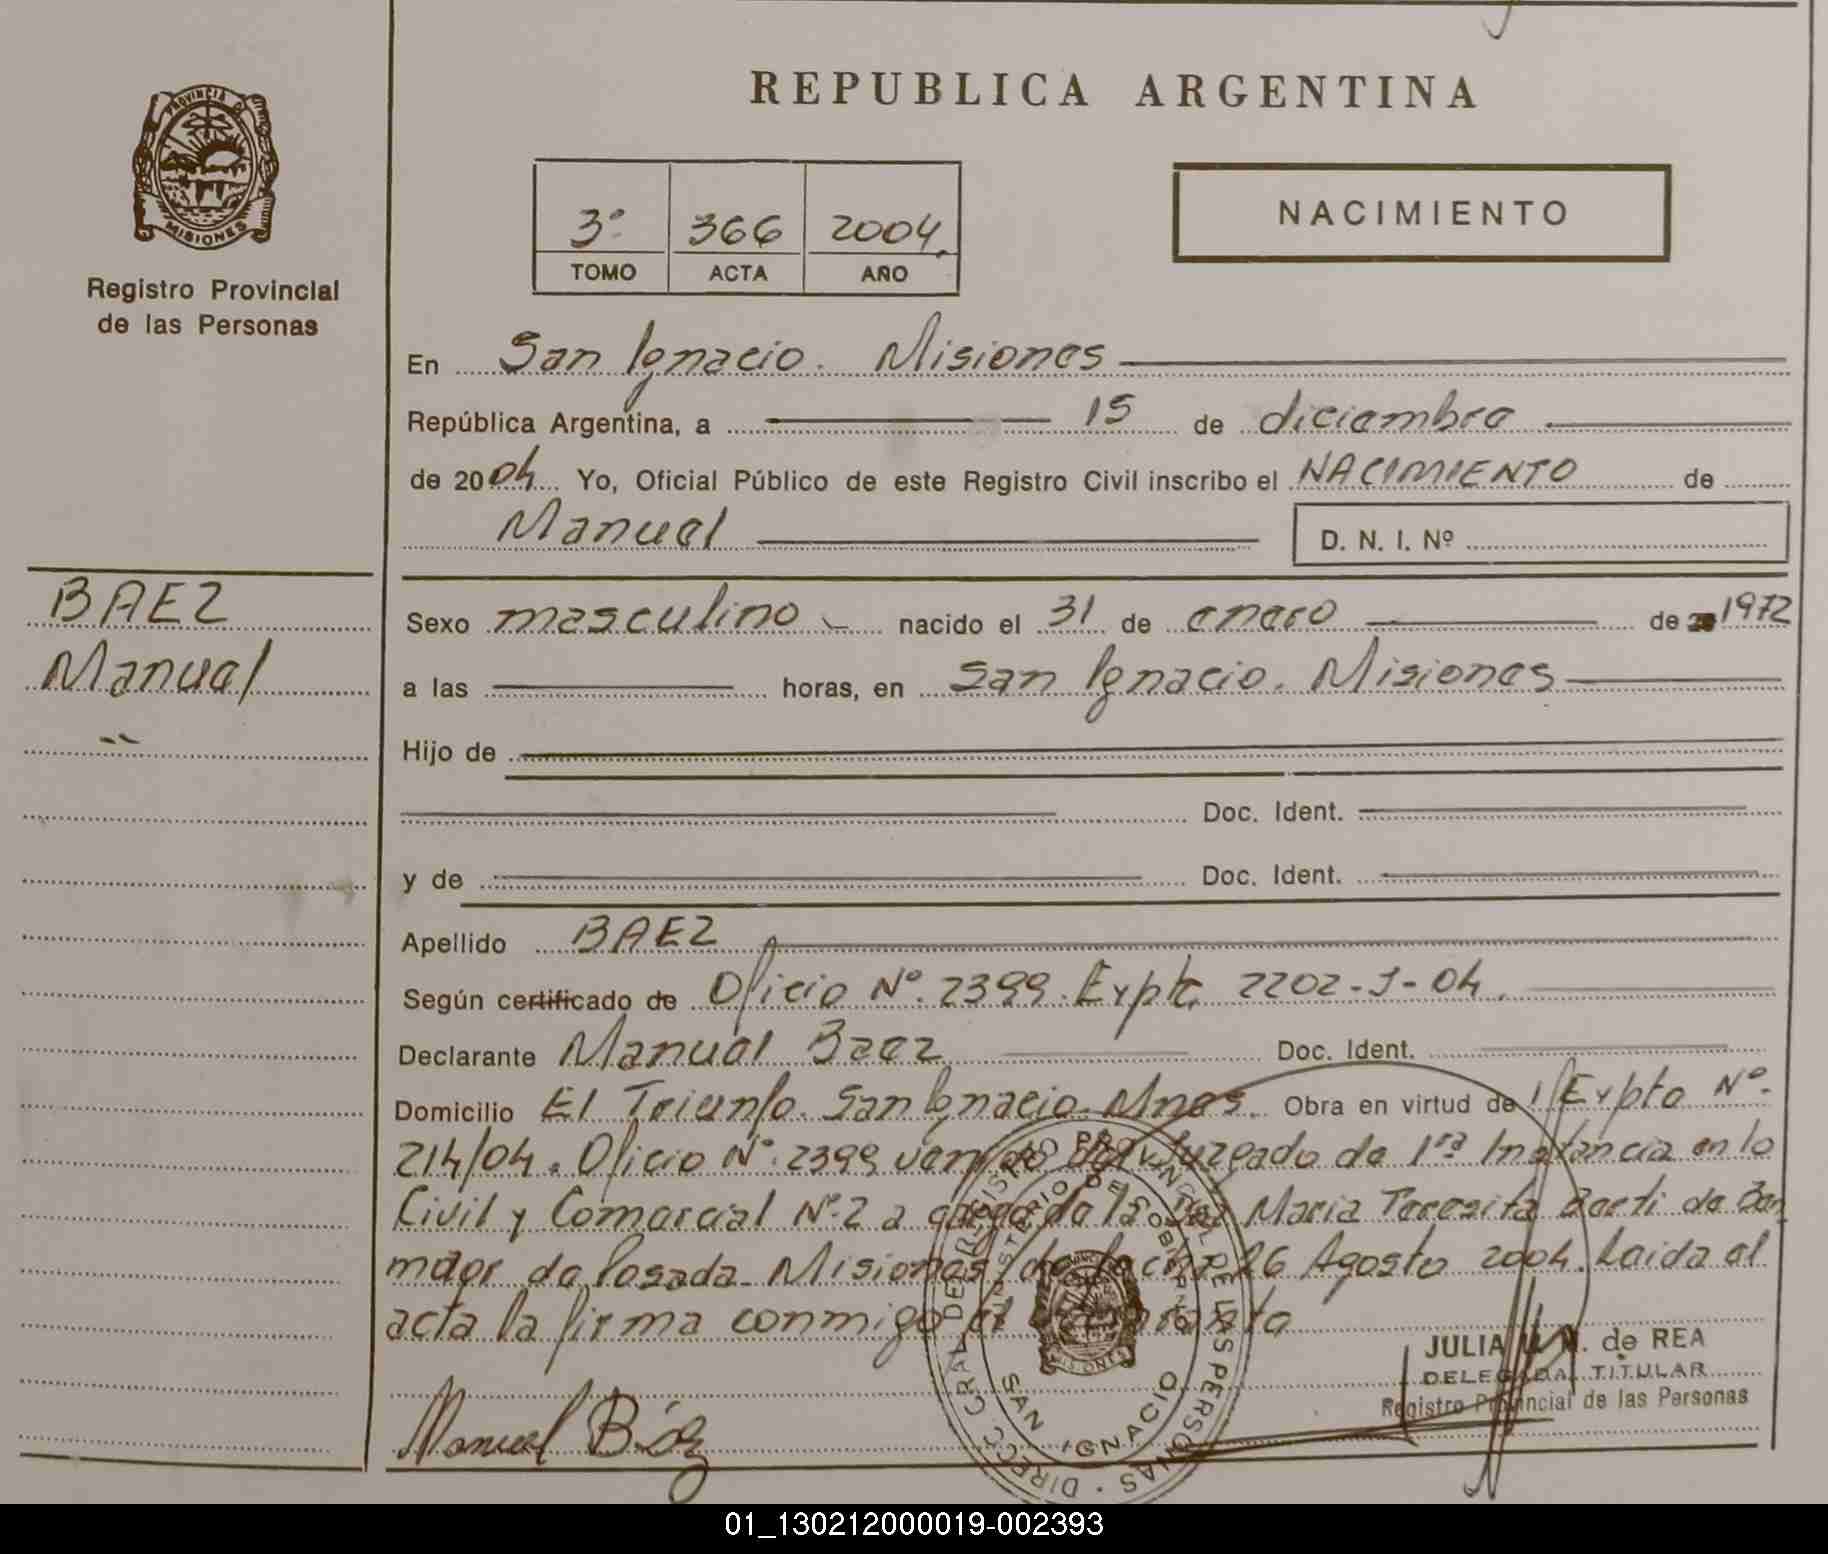 REPUBLICA ARGENTINA
PROVINCIA DE
MISIONES
Registro Provincial
de las Personas
3º 366 2004.
TOMO ACTA AÑO
NACIMIENTO
En San Ignacio. Misiones
República Argentina, a 15 de diciembre
de 2004 Yo, Oficial Público de este Registro Civil inscribo el NACIMIENTO de
Manuel D. N. I. Nº
BAEZ
Manuel
Sexo masculino nacido el 31 de enero de 1972
a las horas, en San Ignacio. Misiones
Hijo de
Doc. Ident.
y de Doc. Ident.
Apellido BAEZ
Según certificado de Oficio Nº. 2399. Expte 2202-J-04.
Declarante Manuel Baez Doc. Ident.
Domicilio El Triunfo. San Ignacio. Mnes. Obra en virtud de Expte Nº.
214/04. Oficio Nº. 2399 del Juzgado de 1ra Instancia en lo
Civil y Comercial Nº 2 a cargo de la Maria Teresita de
de Posada. Misiones de fecha 26 Agosto 2004. Leida el
acta la firma conmigo el declarante
JULIA de REA
DELEGADA TITULAR
Registro Provincial de las Personas
Manuel Báez
DIRECC. GRAL. DEL REGISTRO PROVINCIAL DE LAS PERSONAS
MINISTERIO DE GOBIERNO
MISIONES
SAN IGNACIO
01_130212000019-002393